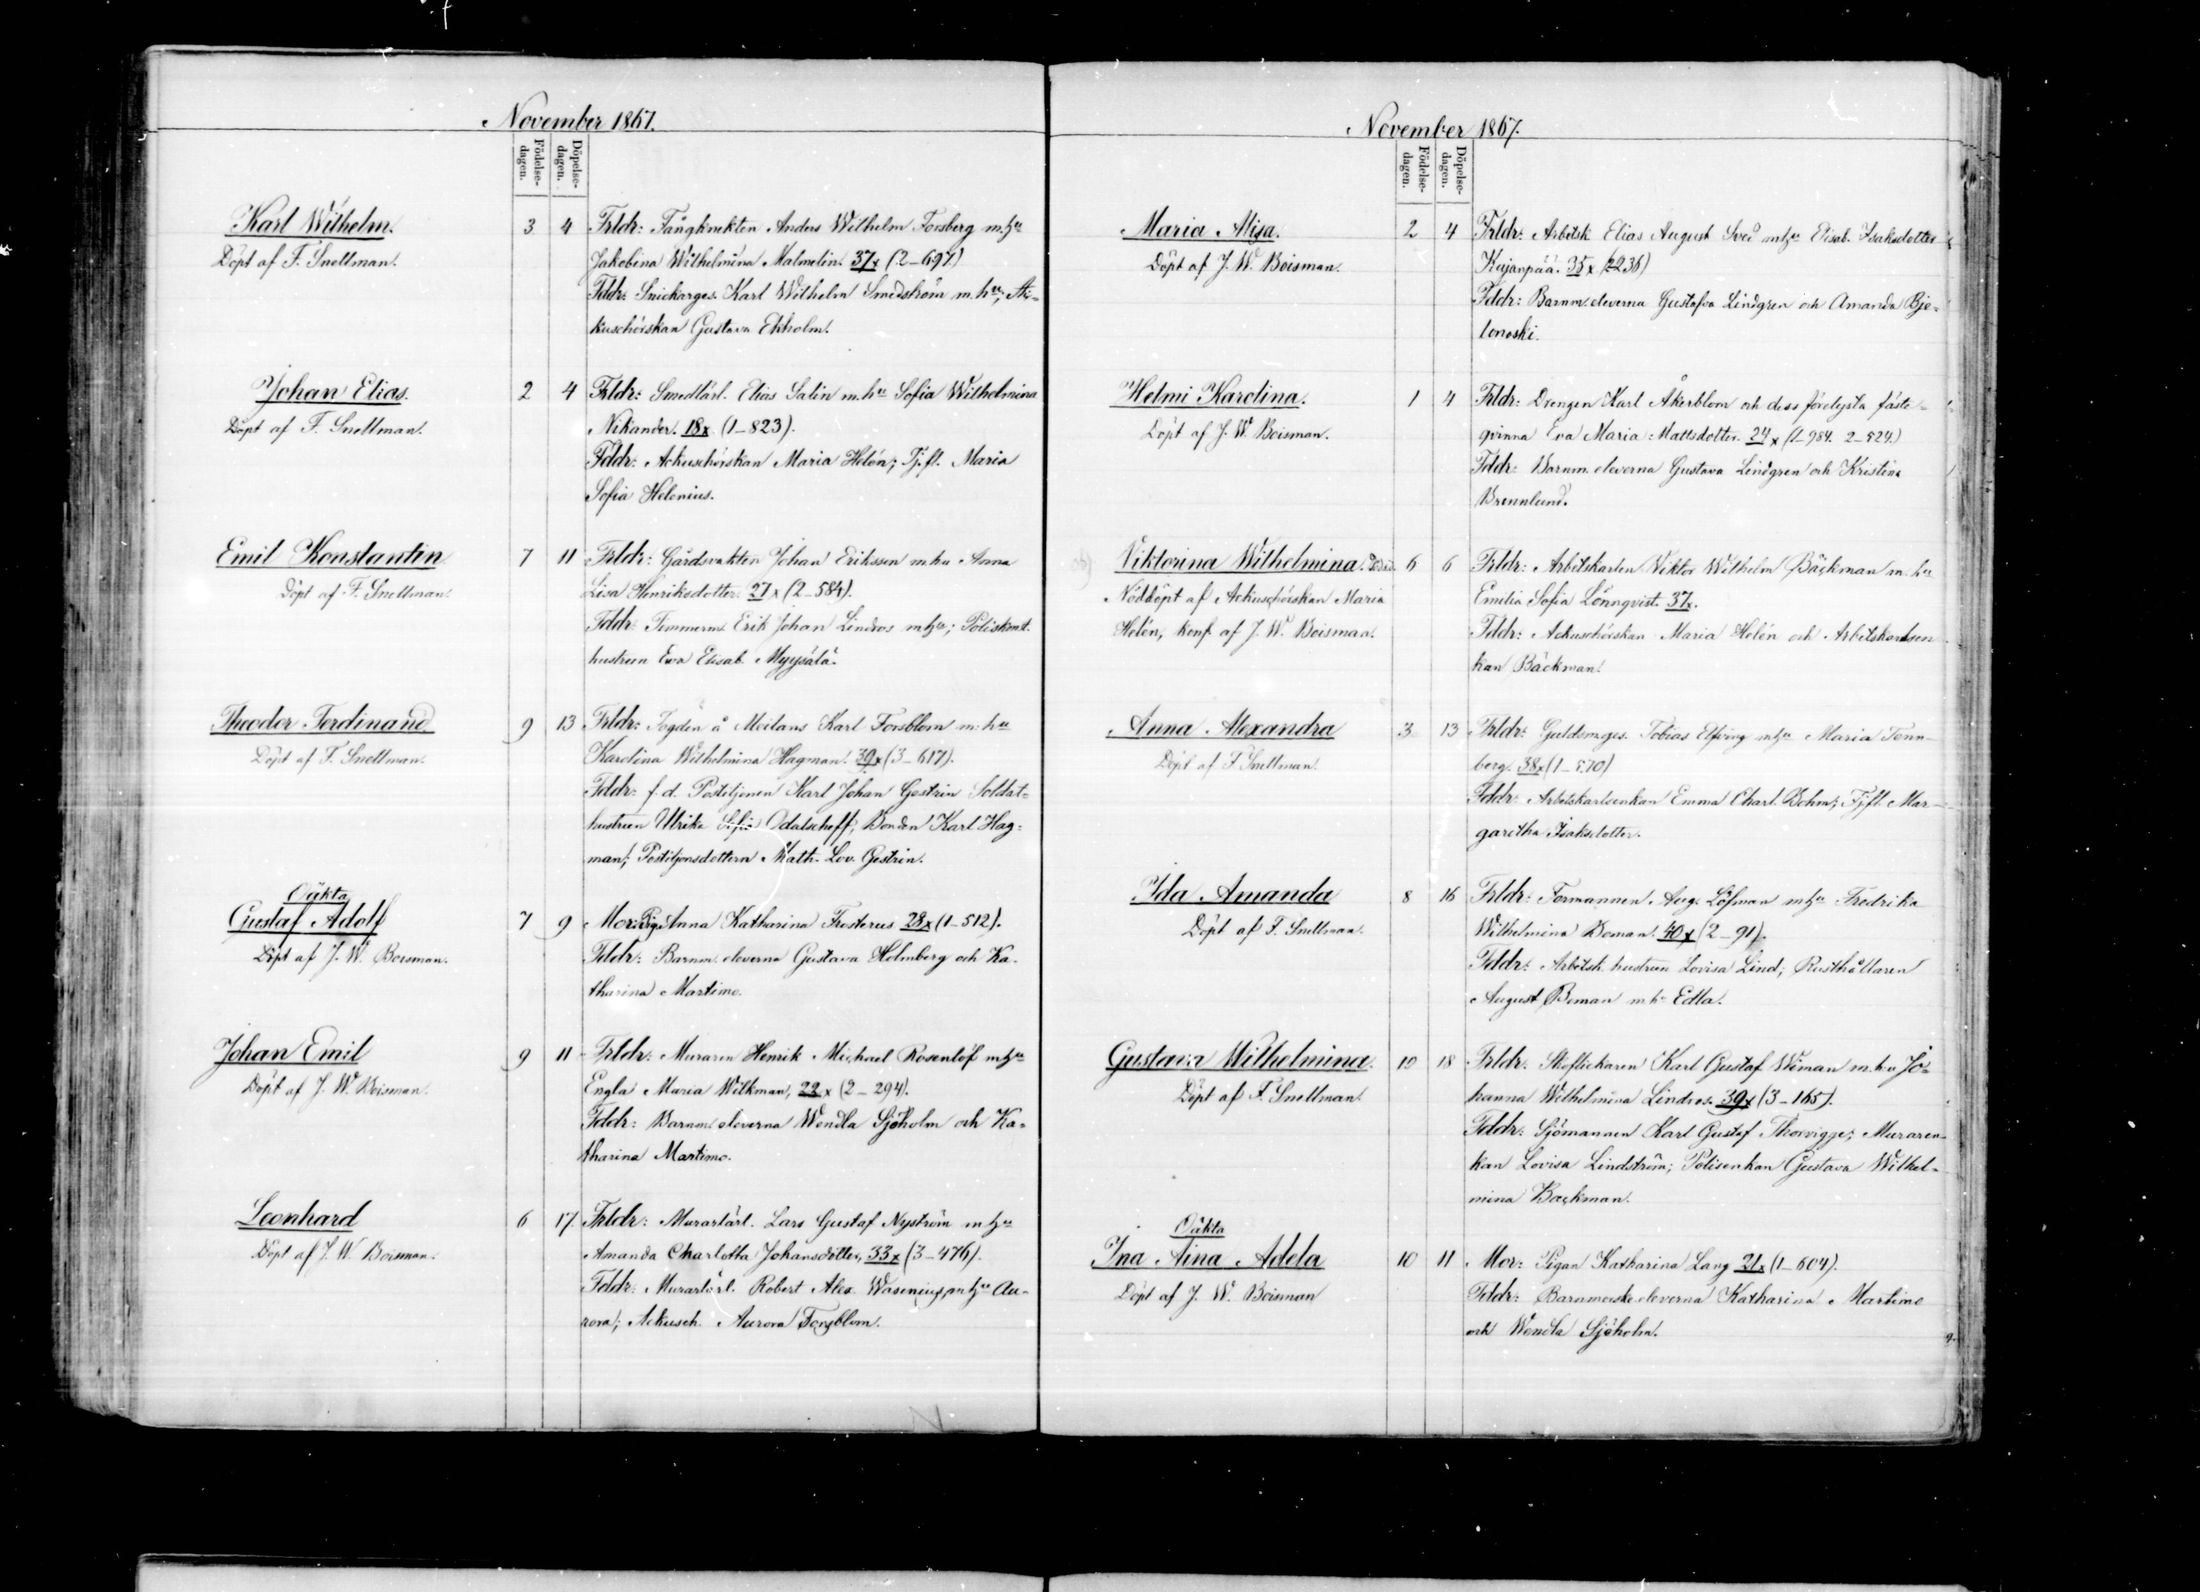 November 1867.
Födelse-
dagen.
Döpelse-
dagen.
Karl Wilhelm.
Döpt af F. Snellman.
3 4
Frldr: Fångknekten Anders Wilhelm Forsberg m. hu
Jakobina Wilhelmina Malmelin. 37x (2-697)
Fddr: Snickarges. Karl Wilhelm Smedström m. hu; Ac-
kuschörskan Gustava Ekholm.
Johan Elias.
Döpt af F. Snellman.
2 4
Frldr: Smedlärl. Elias Salin m. hu Sofia Wilhelmina
Nikander. 18x (1-823).
Fddr: Ackuschörskan Maria Helén; Tjfl. Maria
Sofia Helenius.
Emil Konstantin
Döpt af F. Snellman.
7 11
Frldr: Gårdsvakten Johan Eriksson m. hu Anna
Lisa Henriksdotter. 27x (2-584).
Fddr: Timmerm. Erik Johan Lindros m hu; Poliskonst.
hustrun Eva Elisab. Myysälä.
Theodor Ferdinand
Döpt af F. Snellman.
9 13
Frldr: Fogden å Meilans Karl Forsblom m. hu
Karolina Wilhelmina Hagman. 39x (3-617).
Fddr: f. d. Postiljonen Karl Johan Gestrin Soldat-
hustrun Ulrika Sofia Odalscheff; Bonden Karl Hag-
man; Postiljonsdottern Math. Lov. Gestrin.
Oäkta
Gustaf Adolf
Döpt af J. W. Boisman.
7 9
Mor: Pig. Anna Katharina Frosterus 28x (1-512).
Fddr: Barnm. eleverna Gustava Holmberg och Ka-
tharina Martimo.
Johan Emil
Döpt af J. W. Boisman.
9 11
Frldr: Muraren Henrik Michael Rosenlöf m hu
Engla Maria Wilkman, 22x (2-294).
Fddr: Barnm. eleverna Wendla Sjöholm och Ka-
tharina Martimo.
Leonhard
Döpt af J. W. Boisman.
6 17
Frldr: Murarlärl. Lars Gustaf Nyström m hu
Amanda Charlotta Johansdotter, 33x (3-476).
Fddr: Murarlärl. Robert Alex. Wasenius, m hu Au-
rora; Ackusch. Aurora Forsblom.
November 1867.
Födelse-
dagen.
Döpelse-
dagen.
Maria Alisa.
Döpt af J. W. Boisman.
2 4
Frldr: Arbetsk Elias August Sved m hu Elisab. Isaksdotter
Kujanpää. 35x (2236)
Fddr: Barnm. eleverna Gustafva Lindgren och Amanda Bje-
lonoski.
Helmi Karolina.
Döpt af J. W. Boisman.
1 4
Frldr: Drengen Karl Åkerblom och dess förelysta fäste-
qvinna Eva Maria Mattsdotter. 24x (1-984. 2-524.)
Fddr: Barnm. eleverna Gustava Lindgren och Kristina
Brennlund.
Viktorina Wilhelmina.
Nöddöpt af Ackuschörskan Maria
Helén, konf. af J. W. Boisman.
6 6
Frldr: Arbetskarlen Viktor Wilhelm Bäckman m. hu
Emilia Sofia Lönnqvist. 37x.
Fddr: Ackuschörskan Maria Helén och Arbetskarlsen-
kan Bäckman.
Anna Alexandra
Döpt af F. Snellman.
3 13
Frldr: Guldsm.ges. Tobias Elfving m hu Maria Tenn-
berg. 38x (1-570)
Fddr: Arbetskarlsenkan Emma Charl. Bohm; Tjfl. Mar-
garetha Isaksdotter.
Ida Amanda
Döpt af F. Snellman.
8 16
Frldr: Formannen Aug. Löfman m hu Fredrika
Wilhelmina Boman. 40x (2-91).
Fddr: Arbetsk. hustrun Lovisa Lind; Rusthållaren
August Boman m. hu Edla.
Gustava Wilhelmina.
Döpt af F. Snellman.
10 18
Frldr: Skoflickaren Karl Gustaf Wiman m. hu Jo-
hanna Wilhelmina Lindros. 39x (3-165).
Fddr: Sjömannen Karl Gustaf Thorvigge; Muraren-
kan Lovisa Lindström; Polisenkan Gustava Wilhel-
mina Backman.
Oäkta
Ina Aina Adela
Döpt af J. W. Boisman
10 11
Mor: Pigan Katharina Lang 21x (1-604).
Fddr: Barnmorskeeleverna Katharina Martimo
och Wendla Sjöholm.